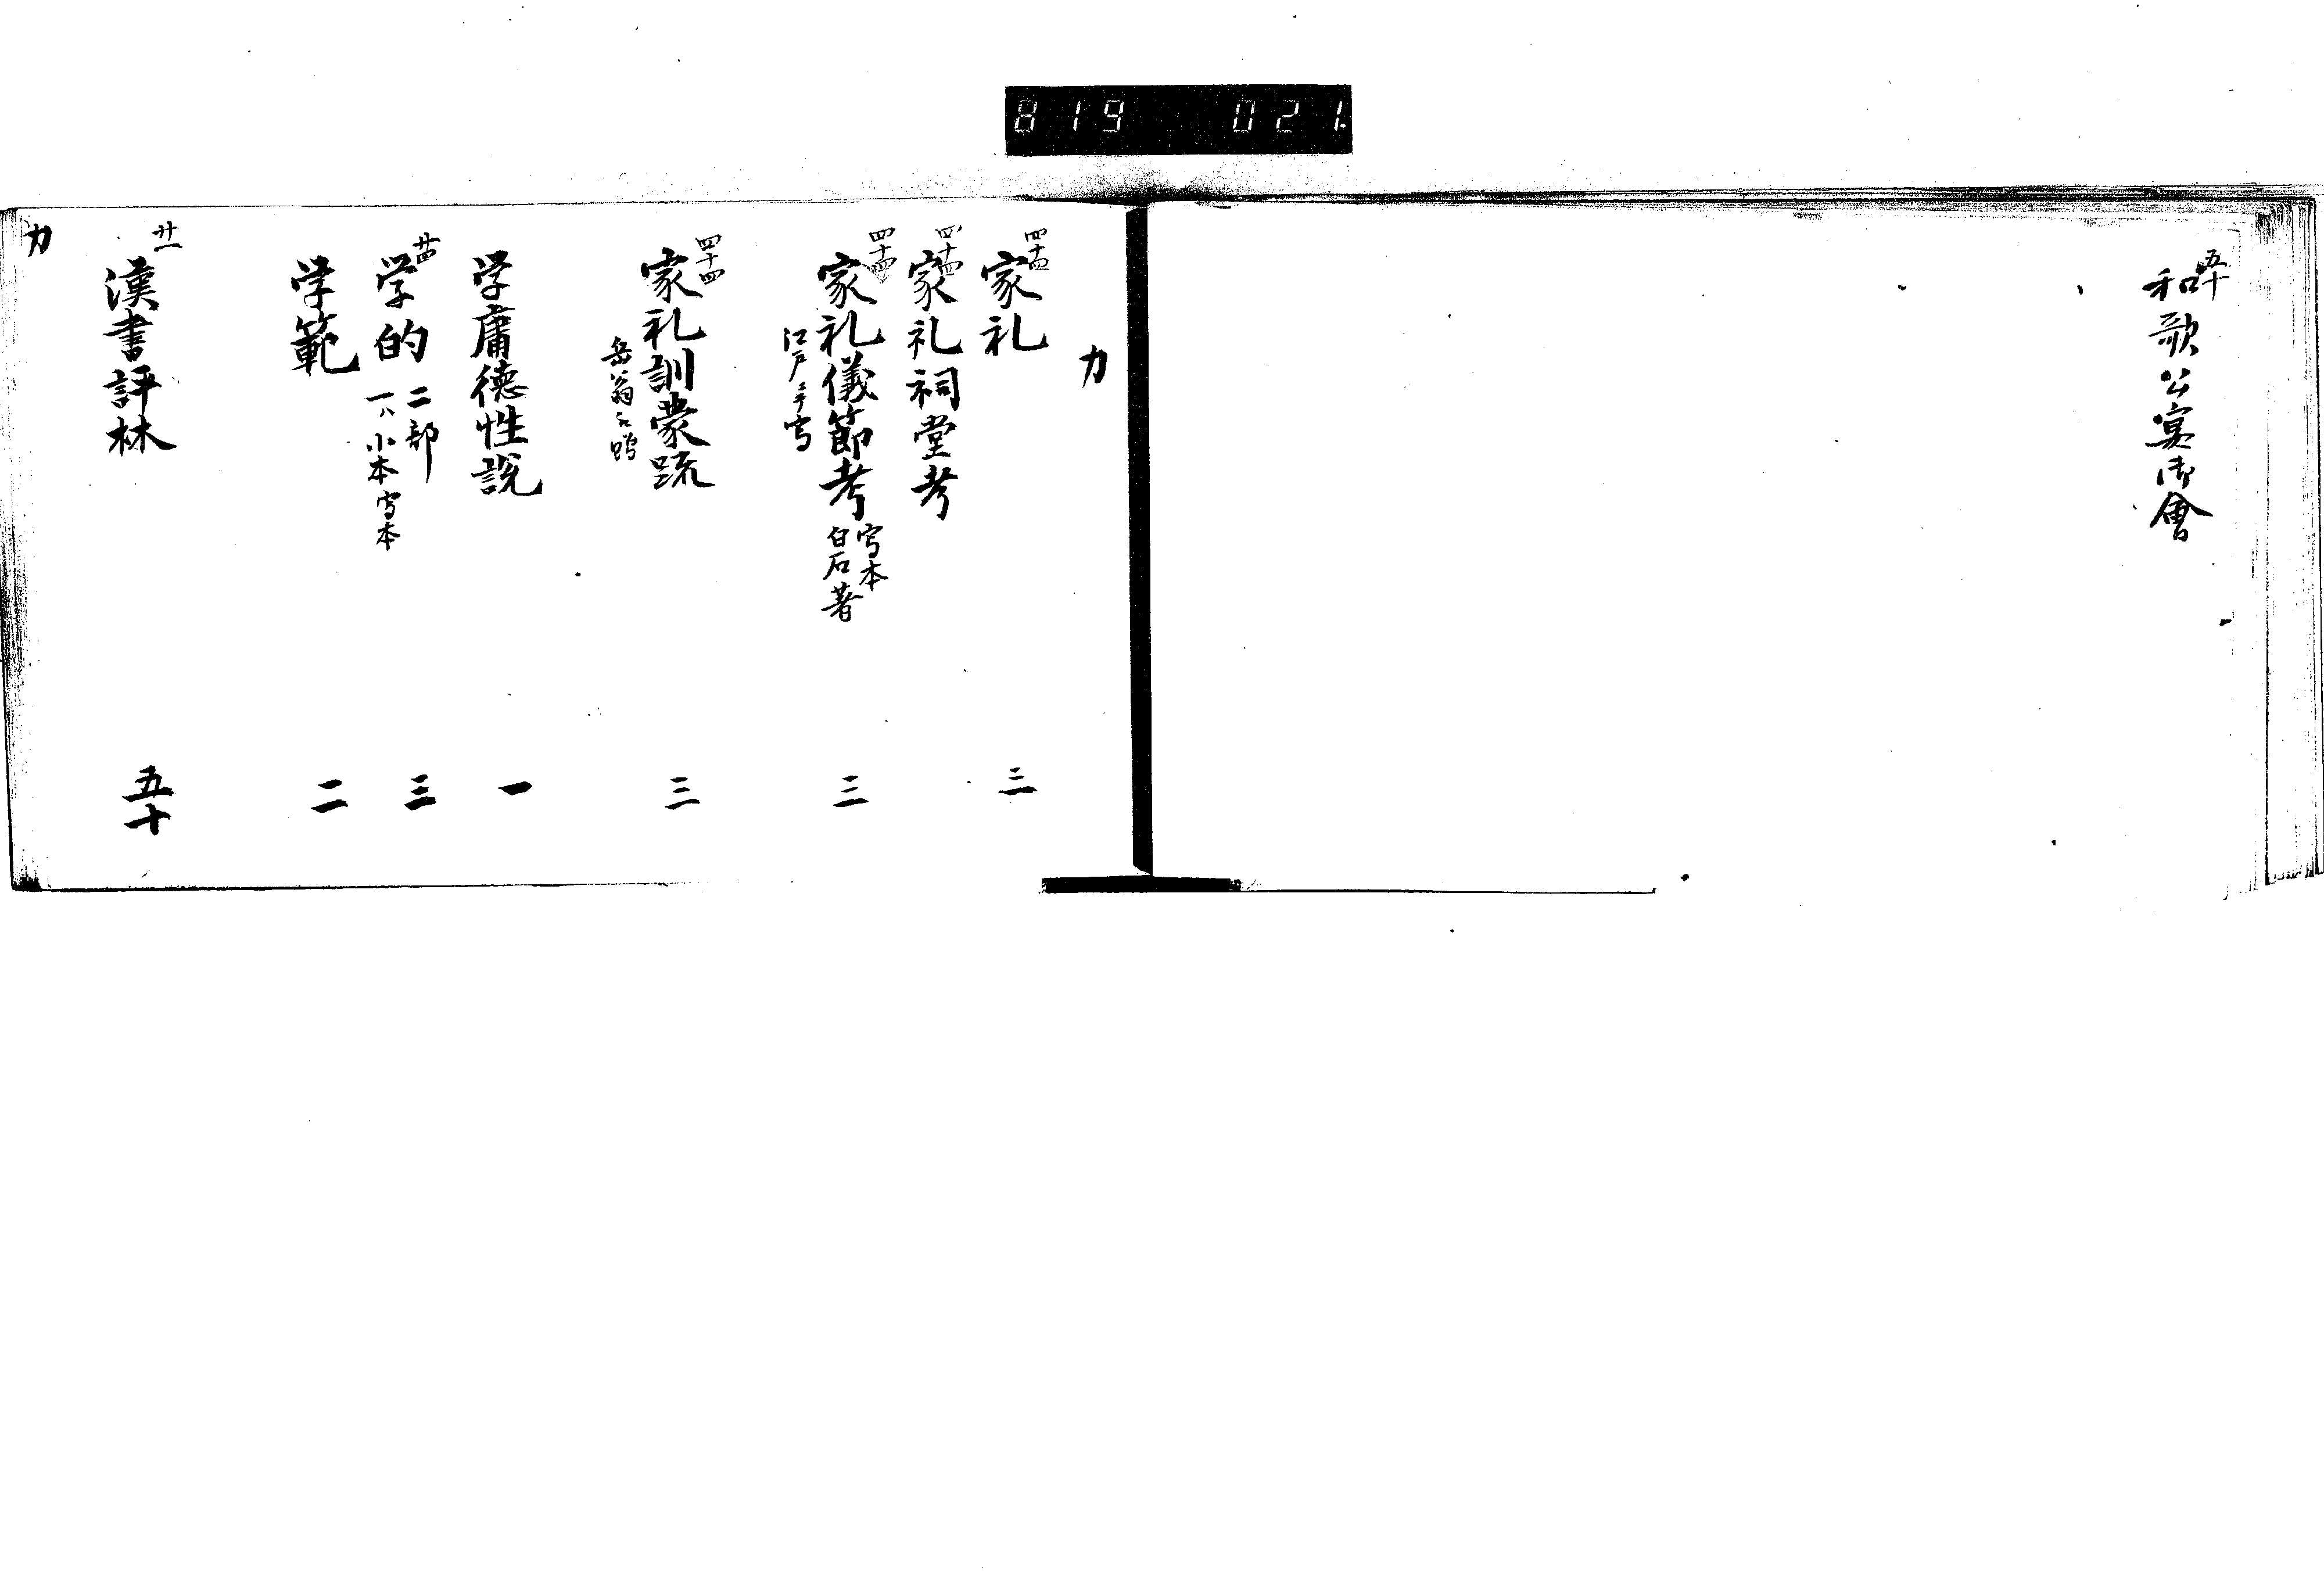 819 021.
五十
和歌公宴御會
カ
四十四
家礼 三
四十四
家礼祠堂考
四十四
家礼儀節考 写本 白石著 三
江戸ニテ写
四十四
家礼訓蒙疏 三
岳翁
学庸徳性説 一
廿四
学的 二部 三
一ハ小本写本
学範 二
廿一
漢書評林 五十
カ